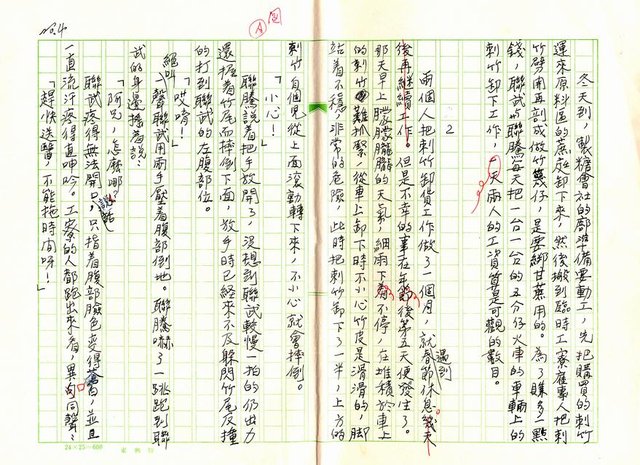 冬天到，製糖會社的都準備運動工，先把購買的刺竹
運來原料區的蔗庭卸下來，然後搬到臨時工寮雇專人把刺
竹劈開再剖成做竹篾仔，是要綁甘蔗用的。為了賺多一點
錢，聯武、聯騰每天把一台一台的五分仔火車的車輛上的
刺竹卸下工作，一天兩人的工資算是可觀的數目。
2
兩個人把刺竹卸貨工作做了一個月，就遇到春節休息幾天
後再繼續工作。但是不幸的事在年節後第五天便發生了。
那天早上朦朦朧朧的天氣，細雨下不停，在堆積於車上
的刺竹難抓緊，從車上卸下時不小心竹皮是滑滑的，腳
站着不穩，非常的危險，此時把刺竹卸下了一半，上方的
刺竹自個兒從上面滾動轉下來，不小心就會摔倒。
「小心！」
聯騰說着把手放開了，沒想到聯武較慢一拍的仍出力
還握着竹尾而摔倒下面，放手時已經來不及躲閃竹尾反撞
的打到聯武的左腹部位。
「哎唷！」
絕叫一聲聯武用兩手壓着腹部倒地。聯騰嚇了一跳跑到聯
武的身邊擔着說：
「阿兄，怎麼哪？」
聯武疼得無法開口說話，只指着腹部臉色變得蒼白，並且
一直流汗疼得直呻吟。工寮的人都跑出來看，異口同聲：
「趕快送醫，不能拖時間呀！」
24×25=600